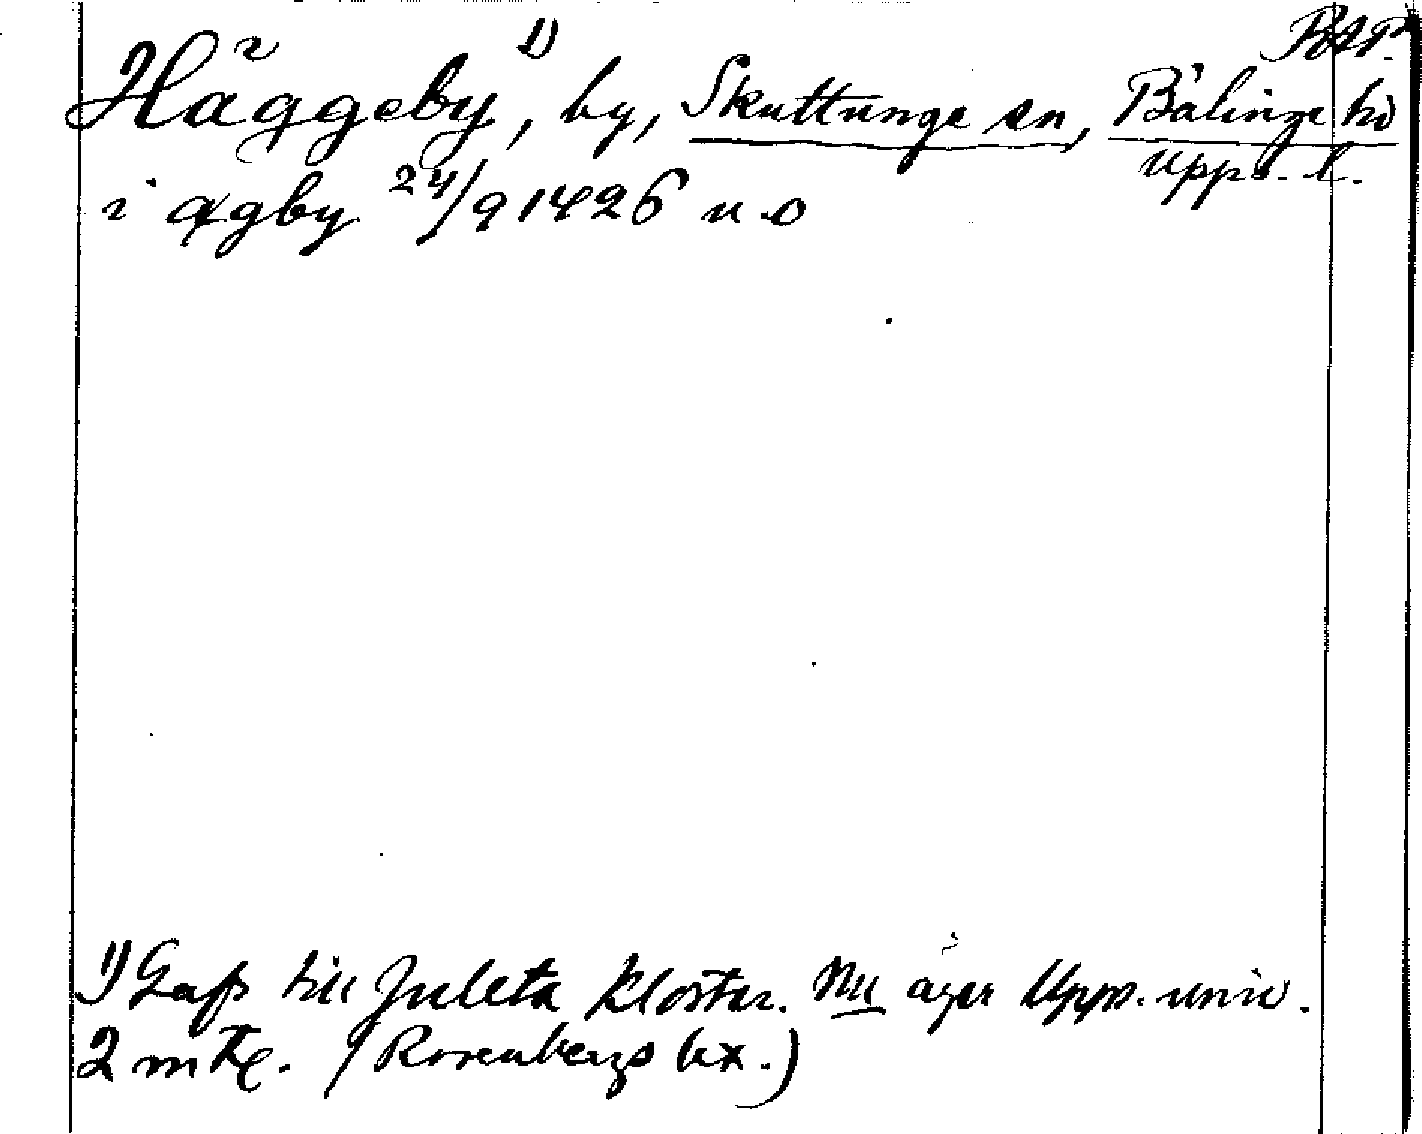 Häggeby, 1) by, Skuttunge sn, Bälinge hd
Upps. l.
i ægby 24/9 1426 u o
1) Gafs till Juleta kloster. Nu äger Upps. univ.
2 mtl. (Rosenbergs lex.)